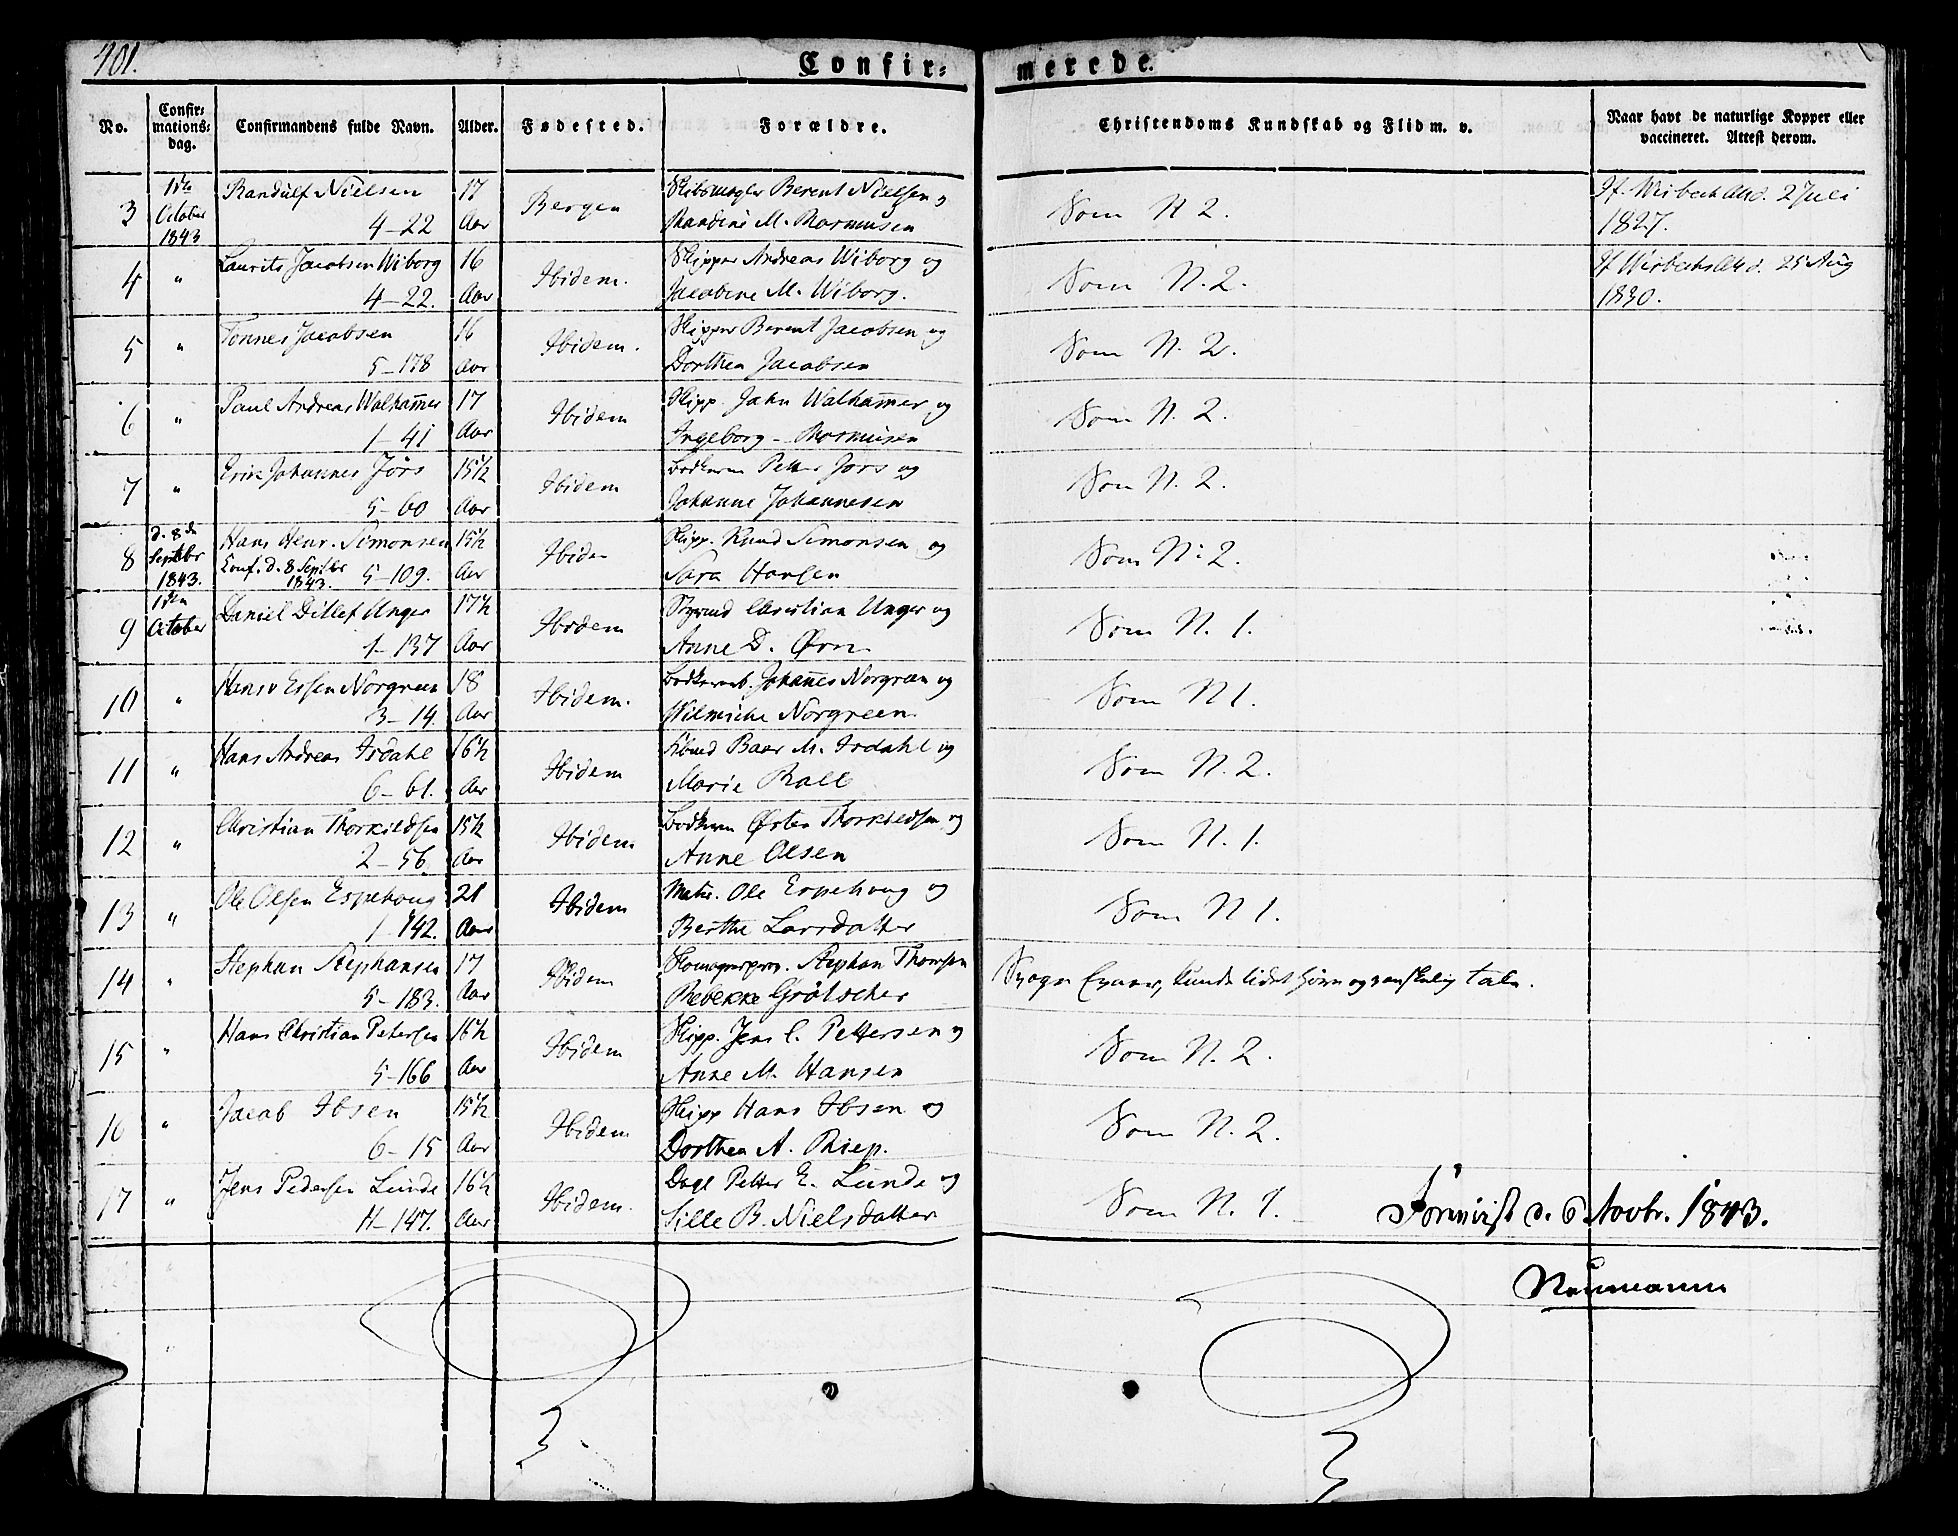 401.
Confir-merede.
No.
Confir-mations-dag.
Confirmandens fulde Navn.
Alder.
Fødested.
Forældre.
Christendoms Kundskab og Flid m. v.
Naar havt de naturlige Kopper eller vaccineret. Attest derom.
3 1ste October 1843 Randulf Nielsen 4-22 17 Aar Bergen Berent Nielsen og Som N 2. 2 Juli
Randine M. Rasmusen 1827.
4 " Laurits Jacobsen Wiborg 4-22. 16 Aar Ibidem. Skipper Andreas Wiborg og Som N. 2. 25 Aug
Jacobine M. Wiborg. 1830.
5 " Tønnes Jacobsen 5-178 16 Aar Ibidem. Skipper Berent Jacobsen og Som N. 2.
Dorthea Jacobsen
6 " Paul Andreas Walhammer 1-41 17 Aar Ibidem Skipp. John Walhammer og Som N. 2.
Ingeborg Rasmusen
7 " Erik Johannes Jörs 5-60 15½ Aar Ibidem Petter Jörs og Som N. 2.
Johanne Johannesen
8 d. 8de Septbr 1843. Hans Henr. Simonsen 15½ Aar Ibidem Skipp. Knud Simonsen og Som N. 2.
Conf. d. 8 Septbr 1843. 5-109. Sara Hansen
9 1ste October Daniel Ditlef Unger 1-137 17½ Aar Ibidem Christian Unger og Som N. 1.
Anne D. Ørn
10 " Hans v Essen Norgreen 3-14. 18 Aar Ibidem. Johannes Norgreen og Som N 1.
Wilmiche Norgreen
11 " Hans Andreas Isdahl 6-61. 16½ Aar Ibidem Baar M. Isdahl og Som N. 2.
Marie Rall
12 " Christian Thorkildsen 2-56. 15½ Aar Ibidem Østen Thorkildsen og Som N. 1.
Anne Olsen
13 " Ole Olsen Espehoug 1-142. 21 Aar Ibidem Matr. Ole Espehoug og Som N 1.
Berthe Larsdatter
14 " Stephan Stephansen 5-183. 17 Aar Ibidem Stephan Thomsen kunde lidet og tale.
Rebekke Grötscher
15 " Hans Christian Petersen 5-166 16½ Aar Ibidem Skipp. Jens C. Pettersen og Som N. 2.
Anne M. Hansen
16 " Jacob Ibsen 6-15 15½ Aar Ibidem Skipp Hans Ibsen og Som N. 2.
Dorthea A. Riep.
17 " Jens Pedersen Lunde 11-147. 16½ Aar Ibidem. Petter E. Lunde og Som N. 1.
Sille B. Nielsdatter
Foreviist d. 6 Novbr. 1843.
Neumann